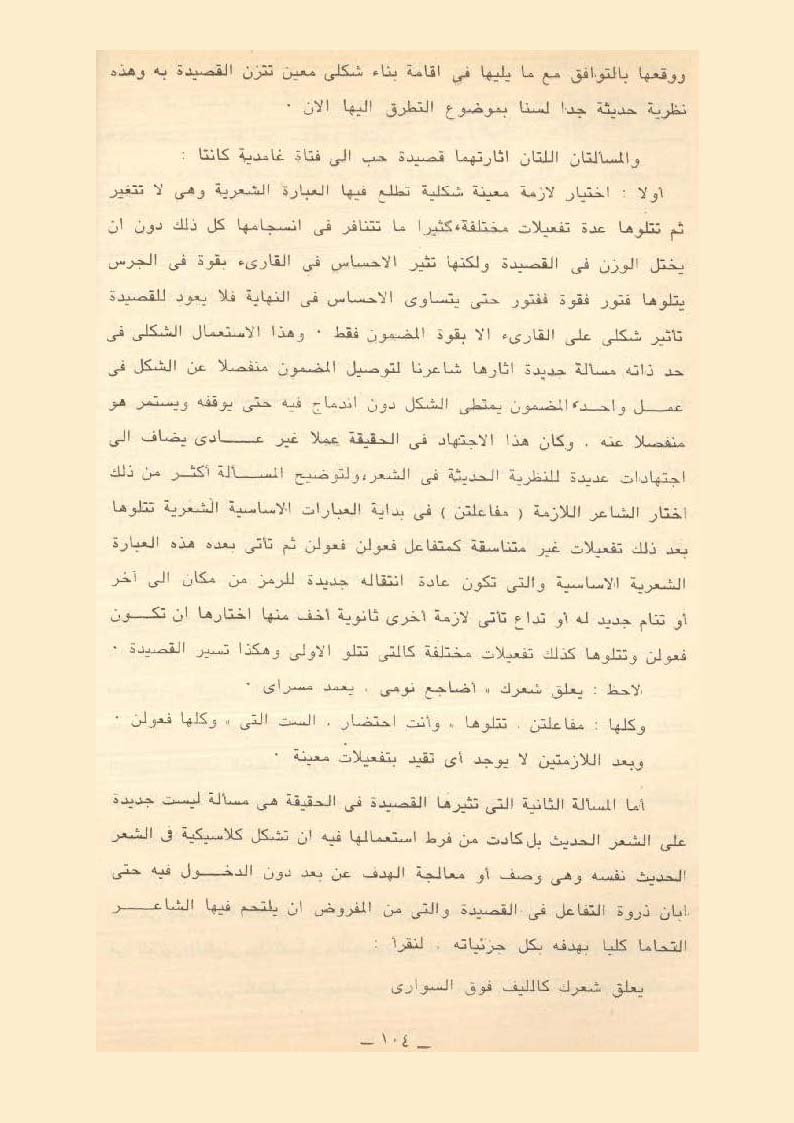 ووقعها بالتوافق مع ما يليها في اقامة بناء شكلى معين تتزن القصيدة به وهذه
نظرية حديثة جدا لسنا بموضوع التطرق اليها الان ٠
والمسالتان اللتان اثارتهما قصيدة حب الى فتاة غامدية كانتا :
أولا : اختيار لازمة معينة شكلية تطلع فيها العبارة الشعرية وهى لا تتغير
ثم تتلوها عدة تفعيلات مختلفة،كثيرا ما تتنافر فى انسجامها كل ذلك دون ان
يختل الوزن فى القصيدة ولكنها تثير الاحساس في القارىء بقوة فى الجرس
يتلوها فتور فقوة ففتور حتى يتساوى الاحساس فى النهاية فلا يعود للقصيدة
تأثير شكلى على القارىء الا بقوة المضمون فقط ٠ وهذا الاستعمال الشكلى فى
حد ذاته مسألة جديدة اثارها شاعرنا لتوصيل المضمون منفصلا عن الشكل فى
عمـــل واحد،المضمون يمتطى الشكل دون اندماج فيه حتى يوقفه ويستمر هو
منفصلا عنه . وكان هذا الاجتهاد فى الحقيقة عملا غير عــــادى يضاف الى
اجتهادات عديدة للنظرية الحديثة فى الشعر،ولتوضيح المســألة أكثــر من ذلك
اختار الشاعر اللازمة ( مفاعلتن ) فى بداية العبارات الاساسية الشعرية تتلوها
بعد ذلك تفعيلات غير متناسقة كمتفاعل فعولن فعولن ثم تأتى بعده هذه العبارة
الشعرية الاساسية والتى تكون عادة انتقاله جديدة للرمز من مكان الى آخر
أو تنام جديد له أو تداع تأتى لازمة أخرى ثانوية أخف منها اختارها ان تكـــون
فعولن وتتلوها كذلك تفعيلات مختلفة كالتى تتلو الاولى وهكذا تسير القصيدة ٠
لاحظ : يعلق شعرك » أضاجع نومى . يعمد مسراى ٠
وكلها : مفاعلتن . تتلوها » وأنت احتضار . الست التى » وكلها فعولن ٠
وبعد اللازمتين لا يوجد أى تقيد بتفعيلات معينة ٠
أما المسالة الثانية التى تثيرها القصيدة فى الحقيقة هى مسالة ليست جديدة
على الشعر الحديث بل كادت من فرط استعمالها فيه ان تشكل كلاسيكية فى الشعر
الحديث نفسه وهى وصف أو معالجة الهدف عن بعد دون الدخـــول فيه حتى
ابان ذروة التفاعل فى القصيدة والتى من المفروض ان يلتحم فيها الشاعـــر
التحاما كليا بهدفه بكل جزئياته . لنقرأ :
يعلق شعرك كالليف فوق السوارى
– ١٠٤ –